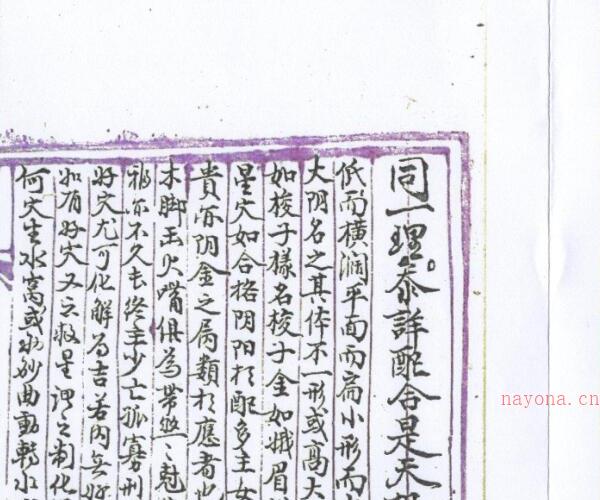 同一理。参詳配合是天
低而橫濶平面而扁小形而
大阴名之其体不一形或高大
如梭子樣名梭子金如娥眉
星穴如合格阴阳相配多主女
貴亦阴金之属類相應者也
木脚玉火嘴俱為帶煞
不久去終主少亡孤寡刑
好穴尤可化解為吉若内無好
如有好穴又云救星理之制化
何穴生水窩或水妙曲動轉水
nayona.cn